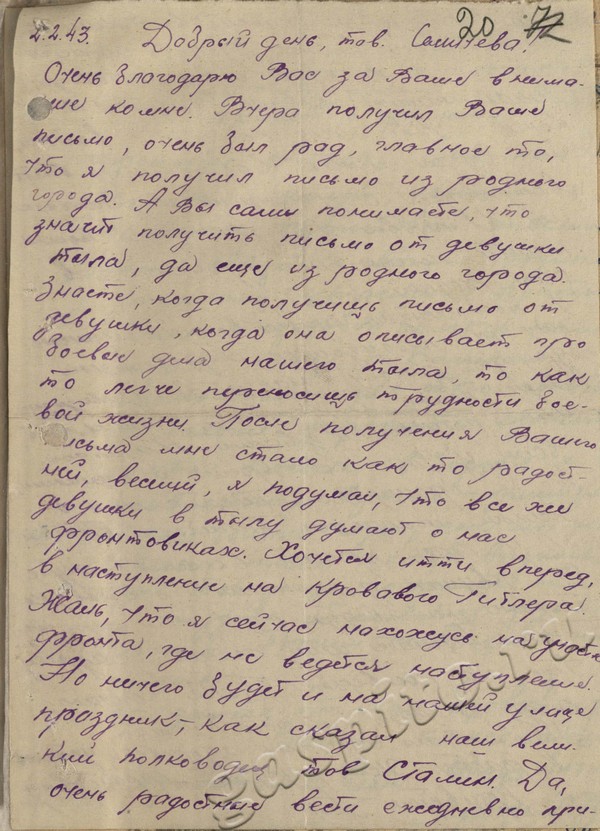 20 72
2.2.43. Добрый день, тов.
Очень благодарю Вас за Ваше внима-
ние ко мне. Вчера получил Ваше
письмо, очень был рад, главное то,
что я получил письмо из родного
города. А Вы сами понимаете, что
значит получить письмо от девушки
тыла, да еще из родного города.
Знаете, когда получишь письмо от
девушки, когда она описывает про
боевые дела нашего тыла, то как
то легче переносишь трудности бое-
вой жизни. После получения Вашего
письма мне стало как то радост-
ней, веселей, я подумал, что все же
девушки в тылу думают о нас
фронтовиках. Хочется итти вперед,
в наступление на кровавого Гитлера.
Жаль, что я сейчас нахожусь на участке
фронта, где не ведется наступление.
Но ничего будет и на нашей улице
праздник, - как сказал наш вели-
кий полководец тов Сталин. Да,
очень радостные вести ежедневно при-